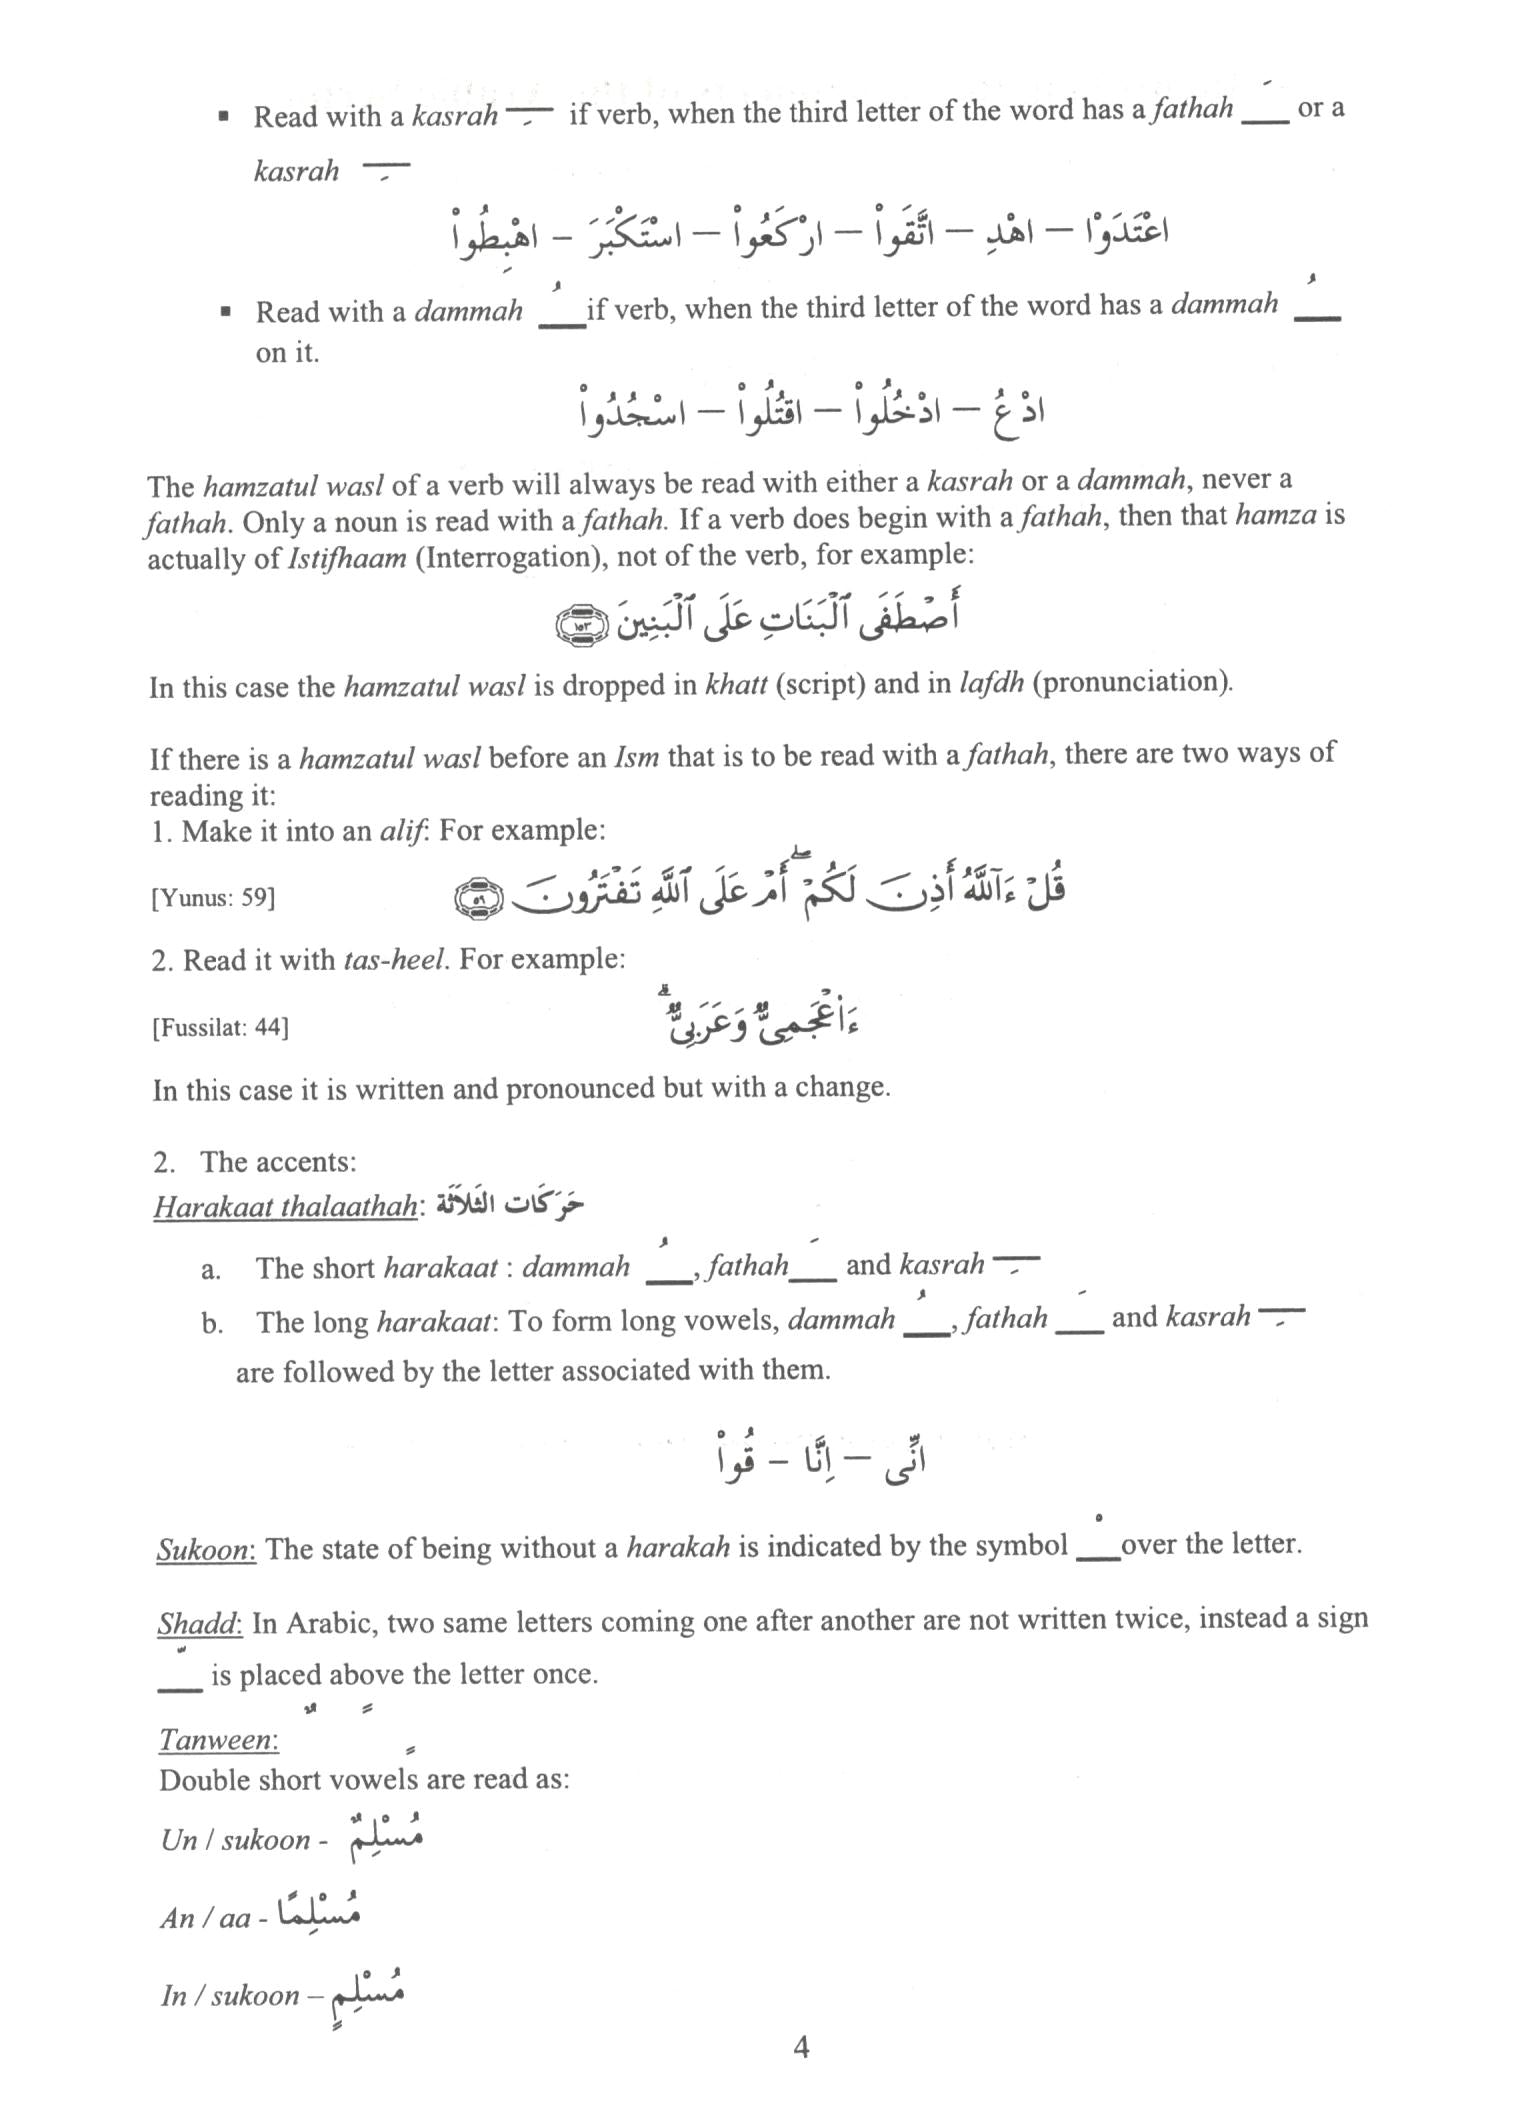 ▪ Read with a kasrah ـِ if verb, when the third letter of the word has a fathah ـَ or a
kasrah ـِ
اعْتَدَوْا – اهْدِ – اتَّقَواْ – ارْكَعُواْ – اسْتَكْبَرَ – اهْبِطُواْ
▪ Read with a dammah ـُ if verb, when the third letter of the word has a dammah ـُ
on it.
ادْعُ – ادْخُلُواْ – اقْتُلُواْ – اسْجُدُواْ
The hamzatul wasl of a verb will always be read with either a kasrah or a dammah, never a
fathah. Only a noun is read with a fathah. If a verb does begin with a fathah, then that hamza is
actually of Istifhaam (Interrogation), not of the verb, for example:
أَصْطَفَى ٱلْبَنَاتِ عَلَى ٱلْبَنِينَ ١٥٣
In this case the hamzatul wasl is dropped in khatt (script) and in lafdh (pronunciation).
If there is a hamzatul wasl before an Ism that is to be read with a fathah, there are two ways of
reading it:
1. Make it into an alif: For example:
[Yunus: 59] قُلْ ءَآللَّهُ أَذِنَ لَكُمْ ۖ أَمْ عَلَى ٱللَّهِ تَفْتَرُونَ ٥٩
2. Read it with tas-heel. For example:
[Fussilat: 44] ءَا۬عْجَمِىٌّ وَعَرَبِىٌّ ۗ
In this case it is written and pronounced but with a change.
2. The accents:
Harakaat thalaathah: حَرَكَات الثَّلاَثَة
a. The short harakaat : dammah ـُ, fathah ـَ and kasrah ـِ
b. The long harakaat: To form long vowels, dammah ـُ, fathah ـَ and kasrah ـِ
are followed by the letter associated with them.
انِّى – اِنَّا – قُواْ
Sukoon: The state of being without a harakah is indicated by the symbol ـْ over the letter.
Shadd: In Arabic, two same letters coming one after another are not written twice, instead a sign
ـّ is placed above the letter once.
Tanween: ٌ ً ٍ
Double short vowels are read as:
Un / sukoon - مُسْلِمٌ
An / aa - مُسْلِمًا
In / sukoon – مُسْلِمٍ
4